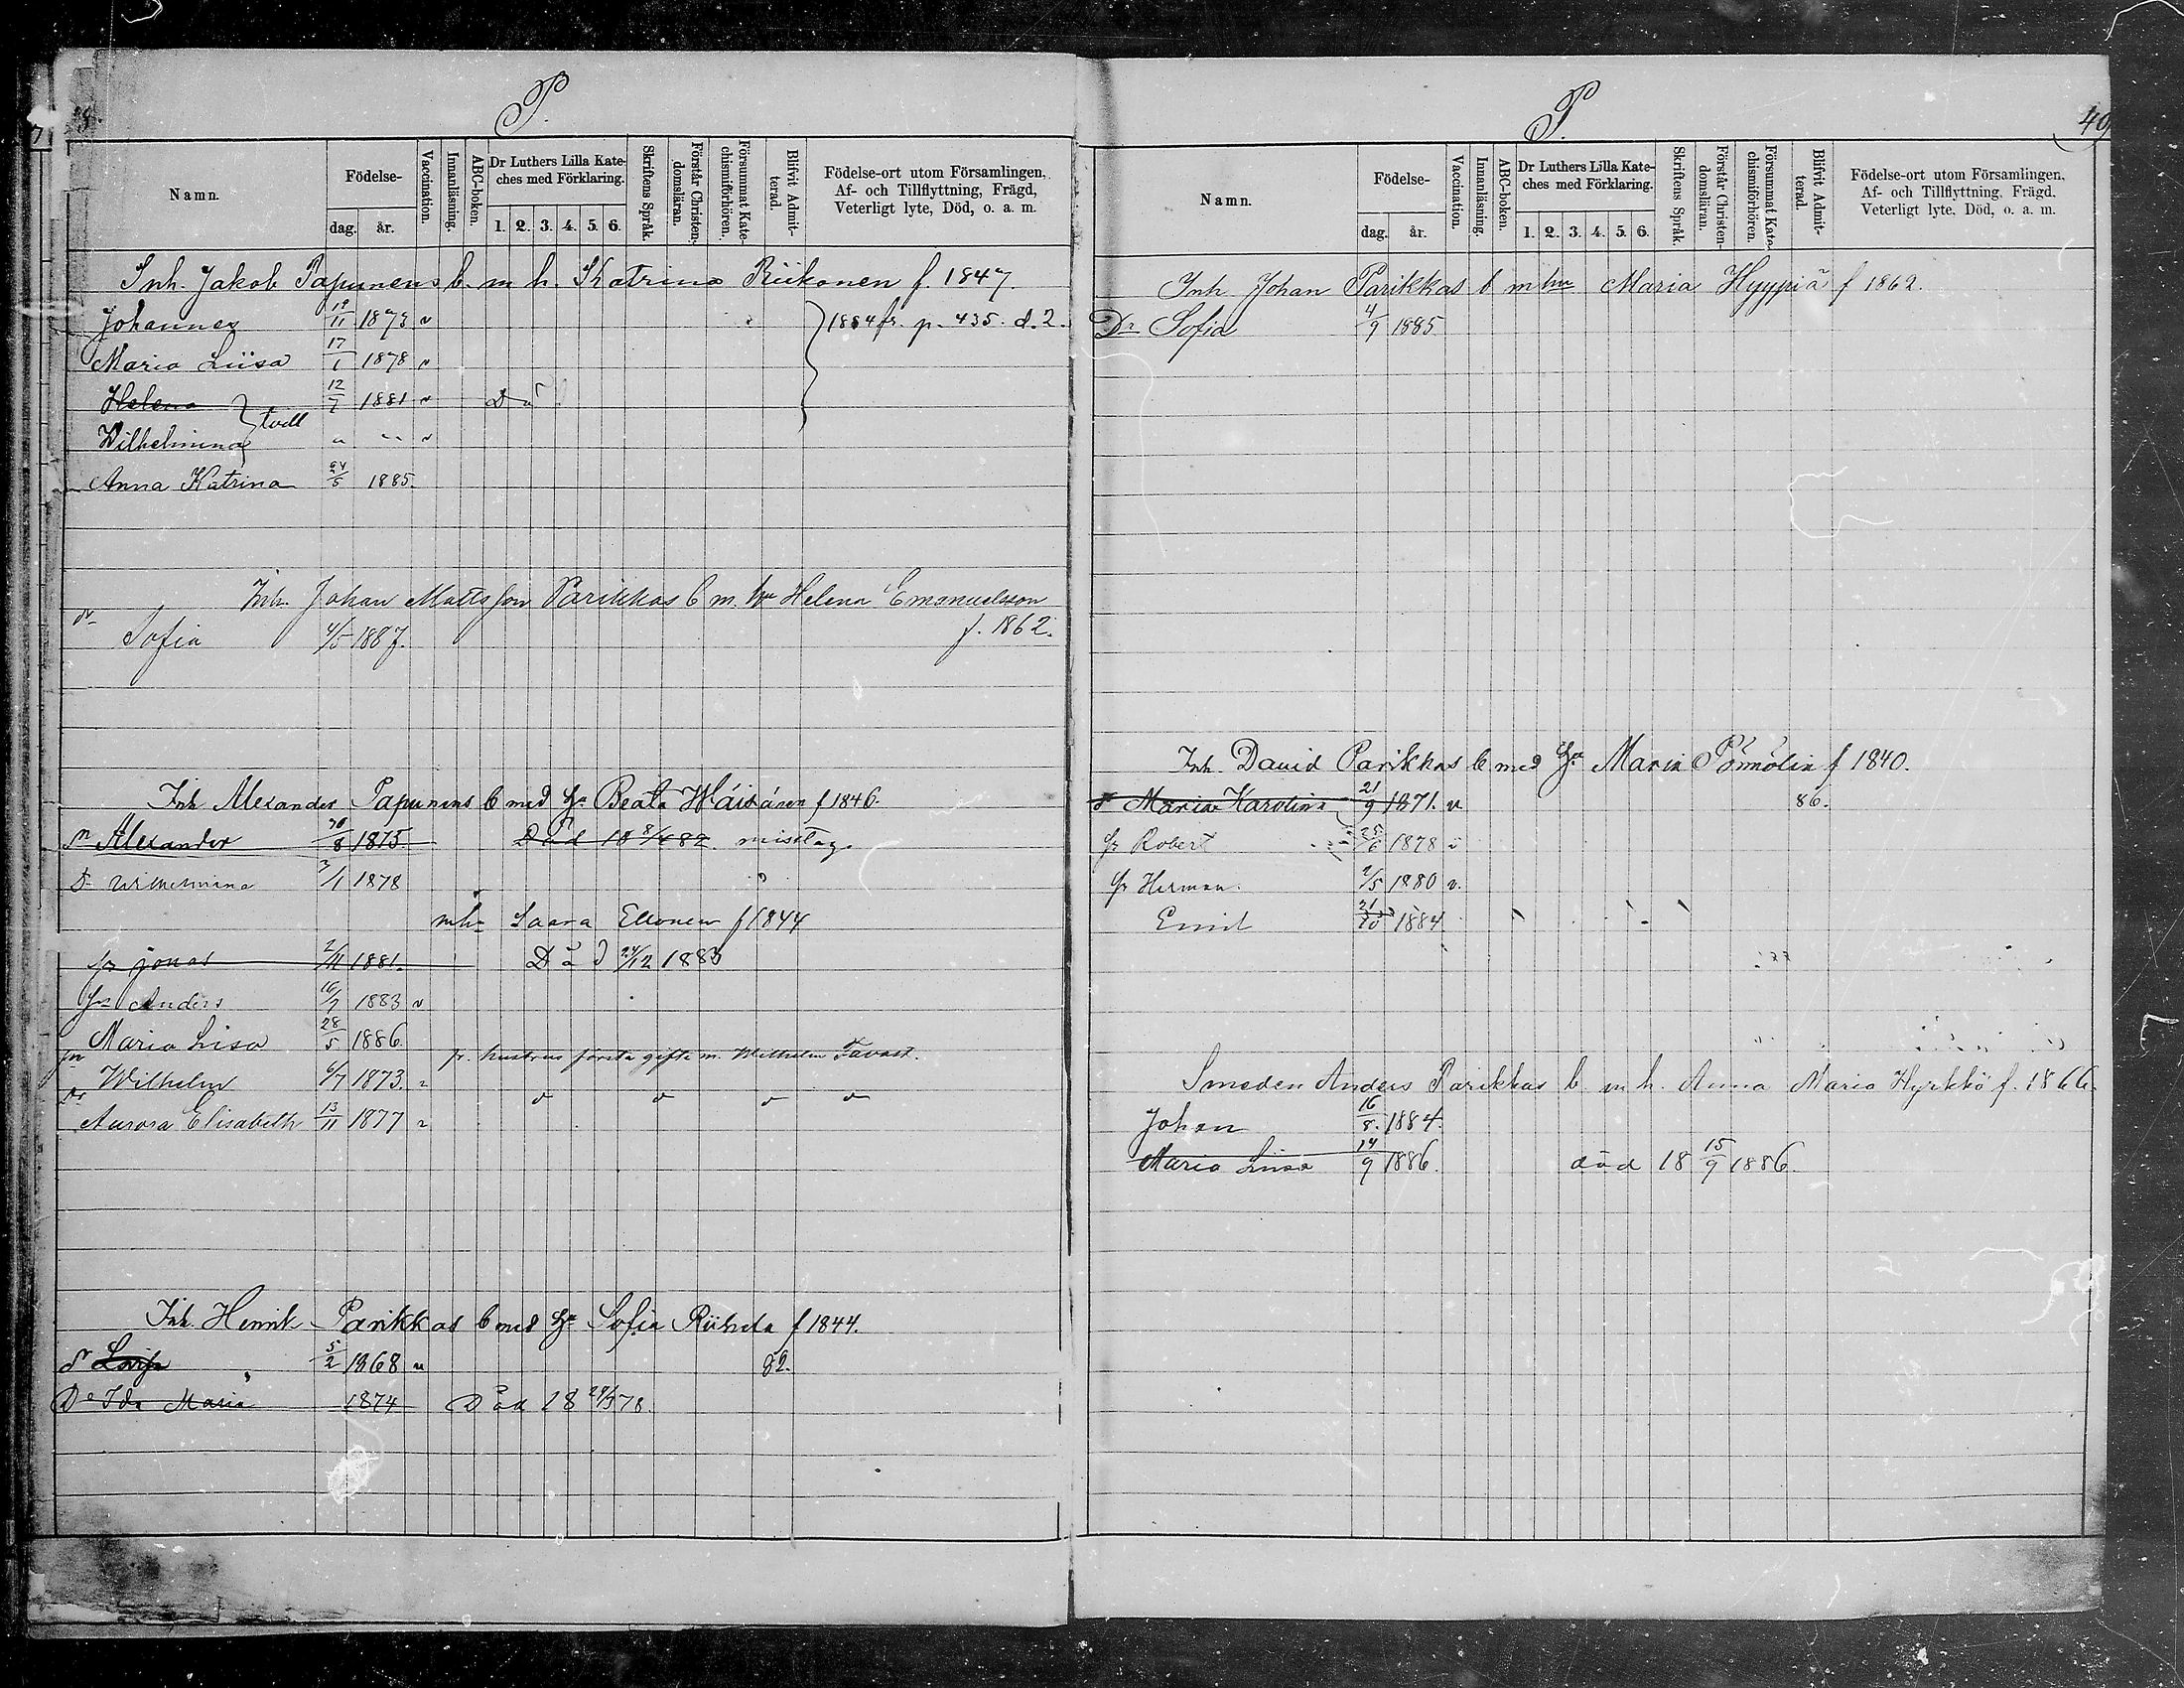 P.
Namn.
Födelse-
dag.
år.
Vaccination.
Innanläsning.
ABC-boken.
Dr Luthers Lilla Kate-
ches med Förklaring.
1. 2. 3. 4. 5. 6.
Skriftens Språk.
Förstår Christen-
domsläran.
Försummat Kate-
chismiförhören.
Blifvit Admit-
terad.
Födelse-ort utom Församlingen,
Af- och Tillflyttning, Frägd,
Veterligt lyte, Död, o. a. m.
Inh. Jakob Papunens b. m h. Katrina Riikonen f. 1847.
Johannes 19/11 1873 v 1884 fr. p. 435. d. 2.
Maria Liisa 17/1 1878 v
Helena 12/7 1881 v Dö
Wilhelmina } tvill " " v
Anna Katrina 24/5 1885.
Inh. Johan Mattsson Parikkas b m. hu Helena Emanuelsson
f. 1862.
dr Sofia 4/5 1887.
Inh Alexander Papunens b med hu Beata Wáisánen f 1846.
Sn Alexander 30/8 1875 Död 18 8/4 82. misstag.
Dr Wilhelmina 3/1 1878
mh Saara Ellonen f 1844
Sn Jonas 2/11 1881. Död 24/12 1883
Sn Anders 16/7 1883 v
Maria Lisa 28/5 1886
fr. hustrus första gifte m. Wilhelm Tavast.
sn Wilhelm 6/7 1873.
dr Aurora Elisabeth 13/11 1877
Inh. Henrik Parikkas b med hu Sofia Riihela f 1844.
dr Lovisa 5/2 1868 v 82.
Dr Ida Maria 1874 Död 18 29/3 78.
P. 49
Namn.
Födelse-
dag.
år.
Vaccination.
Innanläsning.
ABC-boken.
Dr Luthers Lilla Kate-
ches med Förklaring.
1. 2. 3. 4. 5. 6.
Skriftens Språk.
Förstår Christen-
domsläran.
Försummat Kate-
chismiförhören.
Blifvit Admit-
terad.
Födelse-ort utom Församlingen.
Af- och Tillflyttning, Frägd.
Veterligt lyte, Död, o. a. m.
Inh. Johan Parikkas b m hu Maria Hyypiä f 1862.
Dr Sofia 4/9 1885
Inh. David Parikkas b med hu Maria Pönnölin f 1840.
dr Maria Karolina 21/9 1871. v 86.
Sn Robert 25/6 1878 v
Sn Herman. 2/5 1880 v.
Emil 21/10 1884
Smeden Anders Parikkas b m h. Anna Maria Hyrkkö f. 1866.
Johan 16/8. 1884.
Maria Liisa 14/9 1886. död 18 15/9 1886.